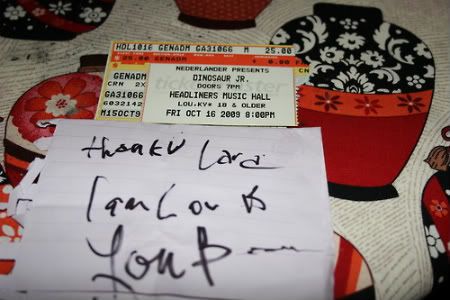 HDL1016 GENADM GA31066 M 25.00
25.00 GENADM + 0.00
GENADM
CRN 2X
GA31066
6032142
M15OCT9
NEDERLANDER PRESENTS
DINOSAUR JR.
DOORS 7PM
HEADLINERS MUSIC HALL
LOU.KY* 18 & OLDER
FRI OCT 16 2009 8:00PM
thank U Lara
I am
Lou B